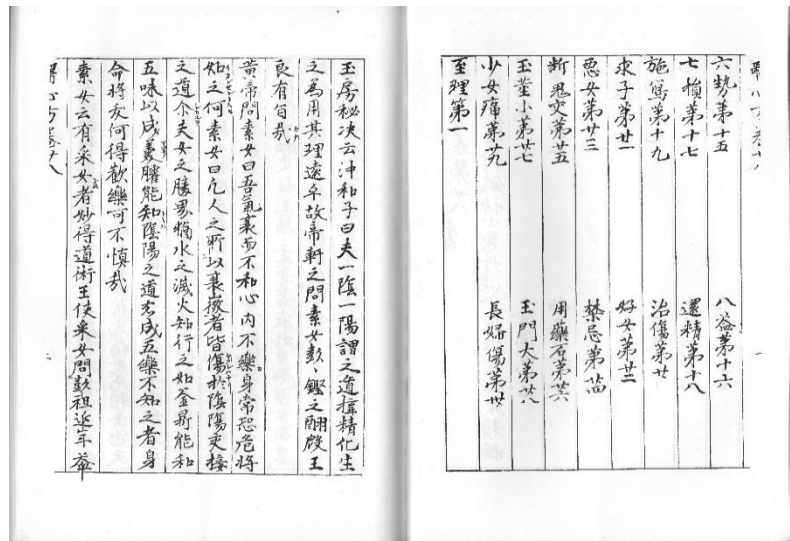 六勢第十五　八益第十六
七損第十七　還精第十八
施寫第十九　治傷第廿
求子第廿一　好女第廿二
惡女第廿三　禁忌第廿四
断鬼交第廿五　用藥石第廿六
玉莖小第廿七　玉門大第廿八
少女痛第廿九　長婦傷第卅
至理第一
玉房秘决云沖和子曰夫一陰一陽謂之道搆精化生
之為用其理遠乎故帝軒之問素女彭、鏗之酬殷王
良有旨哉
黃帝問素女曰吾氣衰而不和心內不樂身常恐危將
如之何素女曰凡人之所以衰微者皆傷於陰陽交接
之道尓夫女之勝男猶水之滅火知行之如釜鼎能和
五味以成羹臛能知陰陽之道悉成五樂不知之者身
命將夭何得歡樂可不慎哉
素女云有采女者妙得道術王使采女問彭祖延年益